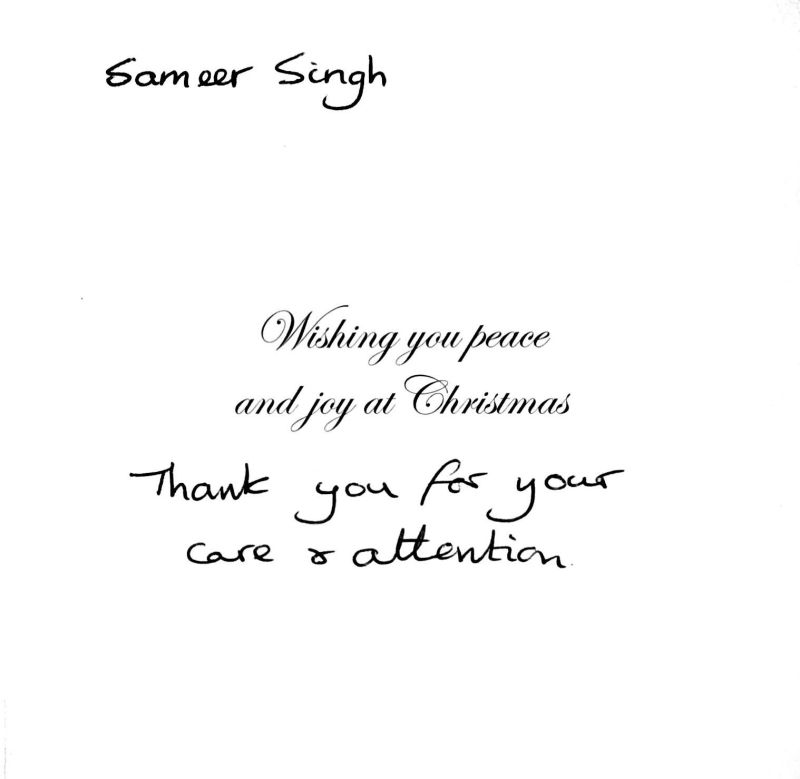 Sameer Singh
Wishing you peace
and joy at Christmas
Thank you for your
care & attention.